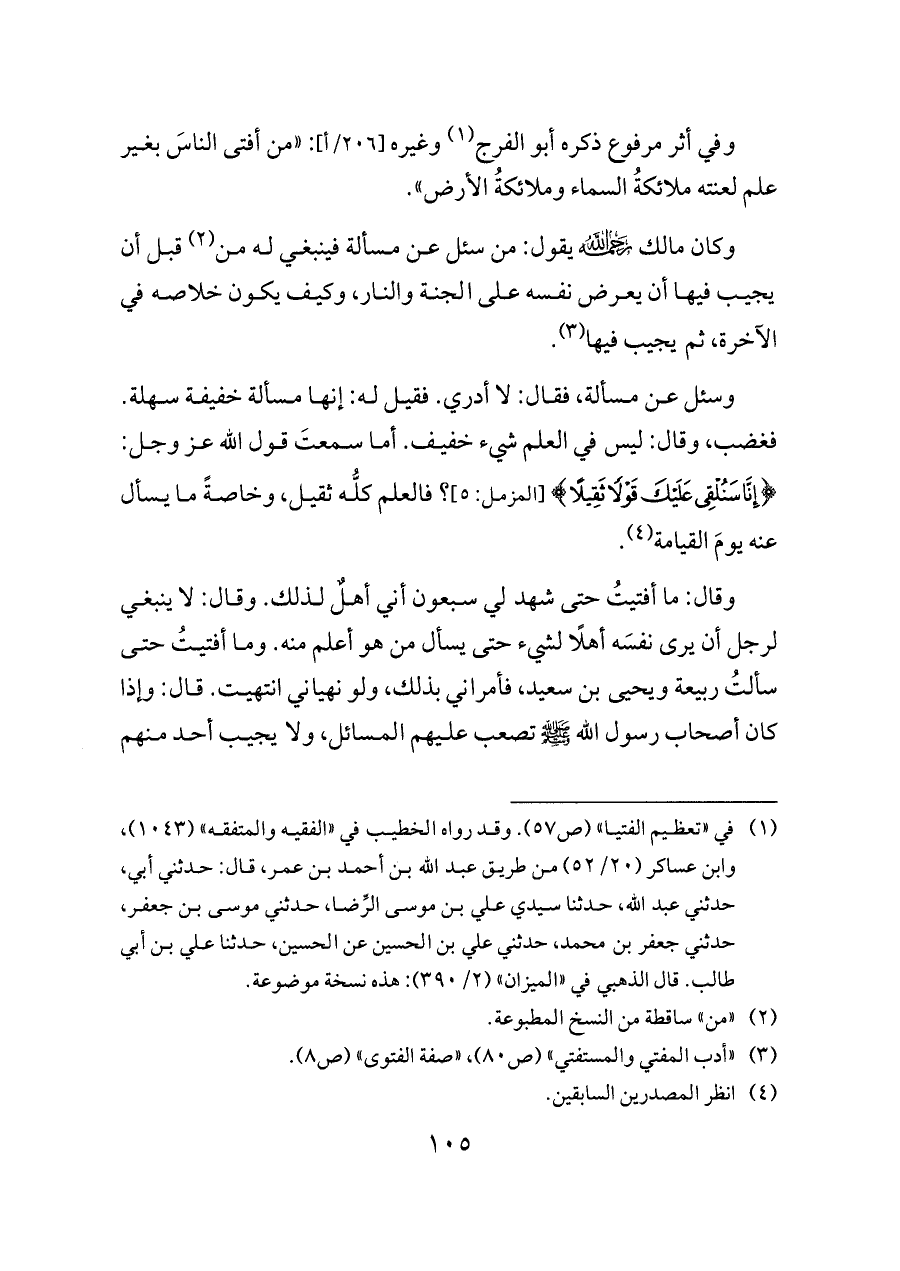 وفي أثر مرفوع ذكره أبو الفرج(١) وغيره [٢٠٦/أ]: «من أفتى الناسَ بغير
علم لعنته ملائكةُ السماء وملائكةُ الأرض».
وكان مالك رَحِمَهُ اللَّهُ يقول: من سئل عن مسألة فينبغي له من(٢) قبل أن
يجيب فيها أن يعرض نفسه على الجنة والنار، وكيف يكون خلاصه في
الآخرة، ثم يجيب فيها(٣).
وسئل عن مسألة، فقال: لا أدري. فقيل له: إنها مسألة خفيفة سهلة.
فغضب، وقال: ليس في العلم شيء خفيف. أما سمعتَ قول الله عز وجل:
﴿إِنَّا سَنُلْقِي عَلَيْكَ قَوْلًا ثَقِيلًا﴾ [المزمل: ٥]؟ فالعلم كلُّه ثقيل، وخاصةً ما يسأل
عنه يومَ القيامة(٤).
وقال: ما أفتيتُ حتى شهد لي سبعون أني أهلٌ لذلك. وقال: لا ينبغي
لرجل أن يرى نفسَه أهلًا لشيء حتى يسأل من هو أعلم منه. وما أفتيتُ حتى
سألتُ ربيعة ويحيى بن سعيد، فأمراني بذلك، ولو نهياني انتهيت. قال: وإذا
كان أصحاب رسول الله ﷺ تصعب عليهم المسائل، ولا يجيب أحد منهم
(١) في «تعظيم الفتيا» (ص٥٧). وقد رواه الخطيب في «الفقيه والمتفقه» (١٠٤٣)،
وابن عساكر (٢٠/ ٥٢) من طريق عبد الله بن أحمد بن عمر، قال: حدثني أبي،
حدثني عبد الله، حدثنا سيدي علي بن موسى الرِّضا، حدثني موسى بن جعفر،
حدثني جعفر بن محمد، حدثني علي بن الحسين عن الحسين، حدثنا علي بن أبي
طالب. قال الذهبي في «الميزان» (٢/ ٣٩٠): هذه نسخة موضوعة.
(٢) «من» ساقطة من النسخ المطبوعة.
(٣) «أدب المفتي والمستفتي» (ص٨٠)، «صفة الفتوى» (ص٨).
(٤) انظر المصدرين السابقين.
١٠٥